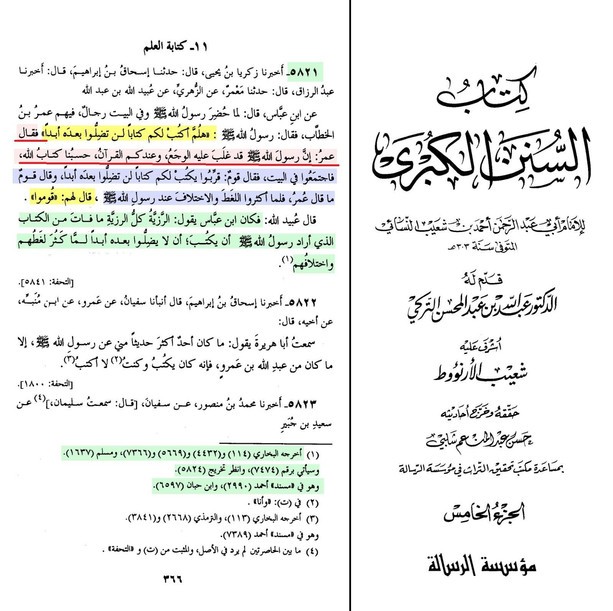 ١١- كتابة العلم
٥٨٢١- أخبرنا زكريا بنُ يحيى، قال: حدثنا إسحاقُ بنُ إبراهيمَ، قال: أخبرنا
عبدُ الرزاق، قال: حدثنا مَعْمَرٌ، عن الزُّهْريِّ، عن عُبيد الله بن عبد الله
عن ابنِ عبَّاس، قال: لما حُضِرَ رسولُ الله ﷺ وفي البيت رجالٌ، فيهم عمرُ بنُ
الخطَّاب، فقال رسولُ الله ﷺ: «هلُمَّ أكتُبْ لكم كتاباً لن تضِلُّوا بعدَه أبداً» فقال
عمرُ: إنَّ رسولَ الله ﷺ قد غلَب عليه الوجَعُ، وعندكم القرآنُ، حسبُنا كتابُ الله،
فاجتمَعُوا في البيت، فقال قومٌ: قرِّبُوا يكتُبْ لكم كتاباً لن تضِلُّوا بعدَه أبداً، وقال قومٌ
ما قال عُمرُ، فلما أكثروا اللَّغَطَ والاختلافَ عند رسولِ الله ﷺ، قال لهم: «قُومُوا».
قال عُبيد الله: فكان ابنُ عباس يقول: الرَّزِيَّةُ كلُّ الرزيَّةِ ما فات من الكتاب
الذي أراد رسولُ الله ﷺ أن يكتُبَ؛ أن لا يضلُّوا بعده أبداً لمَّا كَثُرَ لغَطُهُم
واختلافُهم(١).
[التحفة: ٥٨٤١].
٥٨٢٢- أخبرنا إسحاقُ بنُ إبراهيمَ، قال أنبأنا سفيانُ، عن عَمرو، عن ابن مُنَبِّه،
عن أخيه، قال:
سمعتُ أبا هريرةَ يقول: ما كان أحدٌ أكثرَ حديثاً مني عن رسول الله ﷺ، إلا
ما كان من عبدِ الله بن عَمرو، فإنه كان يكتُبُ وكنتُ(٢) لا أكتبُ(٣).
[التحفة: ١٨٠٠].
٥٨٢٣- أخبرنا محمدُ بنُ منصور، عن سفيانَ، [قال: سمعتُ سليمانَ،](٤) عن
سعيدِ بن جُبَيرٍ
(١) أخرجه البخاري (١١٤) و(٤٤٣٢) و(٥٦٦٩) و(٧٣٦٦)، ومسلم (١٦٣٧).
وسيأتي برقم (٧٤٧٤)، وانظر تخريج (٥٨٢٤).
وهو في «مسند» أحمد (٢٩٩٠)، وابن حبان (٦٥٩٧).
(٢) في (ت): «وأنا».
(٣) أخرجه البخاري (١١٣)، والترمذي (٢٦٦٨) و(٣٨٤١).
وهو في «مسند» أحمد (٧٣٨٩).
(٤) ما بين الحاصرتين لم يرد في الأصل، والمثبت من (ت) و «التحفة».
٣٦٦
كتاب
السنن الكبرى
للإمام أبي عبد الرحمن أحمد بن شعيب النسائي
المتوفى سنة ٣٠٣هـ
قدّم له
الدكتور عبد الله بن عبد المحسن التركي
أشرف عليه
شعيب الأرنؤوط
حققه وخرّج أحاديثه
حسن عبد المنعم شلبي
بمساعدة مكتب تحقيق التراث في مؤسسة الرسالة
الجزء الخامس
مؤسسة الرسالة